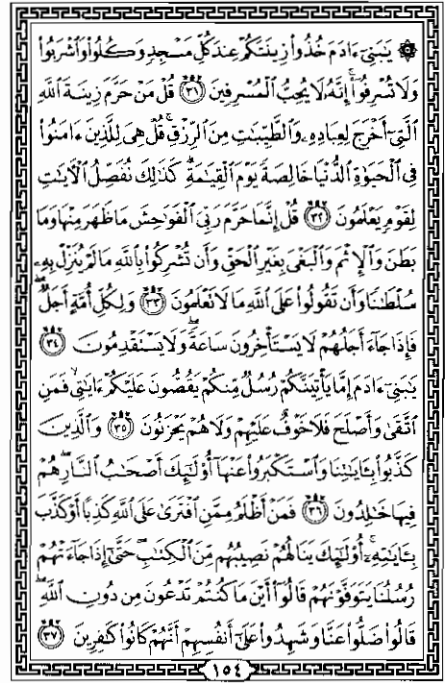 ۞ يَـٰبَنِىٓ ءَادَمَ خُذُوا۟ زِينَتَكُمْ عِندَ كُلِّ مَسْجِدٍ وَكُلُوا۟ وَٱشْرَبُوا۟
وَلَا تُسْرِفُوٓا۟ ۚ إِنَّهُۥ لَا يُحِبُّ ٱلْمُسْرِفِينَ ﴿٣١﴾ قُلْ مَنْ حَرَّمَ زِينَةَ ٱللَّهِ
ٱلَّتِىٓ أَخْرَجَ لِعِبَادِهِۦ وَٱلطَّيِّبَـٰتِ مِنَ ٱلرِّزْقِ ۚ قُلْ هِىَ لِلَّذِينَ ءَامَنُوا۟
فِى ٱلْحَيَوٰةِ ٱلدُّنْيَا خَالِصَةً يَوْمَ ٱلْقِيَـٰمَةِ ۗ كَذَٰلِكَ نُفَصِّلُ ٱلْـَٔايَـٰتِ
لِقَوْمٍ يَعْلَمُونَ ﴿٣٢﴾ قُلْ إِنَّمَا حَرَّمَ رَبِّىَ ٱلْفَوَٰحِشَ مَا ظَهَرَ مِنْهَا وَمَا
بَطَنَ وَٱلْإِثْمَ وَٱلْبَغْىَ بِغَيْرِ ٱلْحَقِّ وَأَن تُشْرِكُوا۟ بِٱللَّهِ مَا لَمْ يُنَزِّلْ بِهِۦ
سُلْطَـٰنًا وَأَن تَقُولُوا۟ عَلَى ٱللَّهِ مَا لَا تَعْلَمُونَ ﴿٣٣﴾ وَلِكُلِّ أُمَّةٍ أَجَلٌ ۖ
فَإِذَا جَآءَ أَجَلُهُمْ لَا يَسْتَأْخِرُونَ سَاعَةً ۖ وَلَا يَسْتَقْدِمُونَ ﴿٣٤﴾
يَـٰبَنِىٓ ءَادَمَ إِمَّا يَأْتِيَنَّكُمْ رُسُلٌ مِّنكُمْ يَقُصُّونَ عَلَيْكُمْ ءَايَـٰتِى ۙ فَمَنِ
ٱتَّقَىٰ وَأَصْلَحَ فَلَا خَوْفٌ عَلَيْهِمْ وَلَا هُمْ يَحْزَنُونَ ﴿٣٥﴾ وَٱلَّذِينَ
كَذَّبُوا۟ بِـَٔايَـٰتِنَا وَٱسْتَكْبَرُوا۟ عَنْهَآ أُو۟لَـٰٓئِكَ أَصْحَـٰبُ ٱلنَّارِ ۖ هُمْ
فِيهَا خَـٰلِدُونَ ﴿٣٦﴾ فَمَنْ أَظْلَمُ مِمَّنِ ٱفْتَرَىٰ عَلَى ٱللَّهِ كَذِبًا أَوْ كَذَّبَ
بِـَٔايَـٰتِهِۦٓ ۚ أُو۟لَـٰٓئِكَ يَنَالُهُمْ نَصِيبُهُم مِّنَ ٱلْكِتَـٰبِ ۖ حَتَّىٰٓ إِذَا جَآءَتْهُمْ
رُسُلُنَا يَتَوَفَّوْنَهُمْ قَالُوٓا۟ أَيْنَ مَا كُنتُمْ تَدْعُونَ مِن دُونِ ٱللَّهِ ۖ
قَالُوا۟ ضَلُّوا۟ عَنَّا وَشَهِدُوا۟ عَلَىٰٓ أَنفُسِهِمْ أَنَّهُمْ كَانُوا۟ كَـٰفِرِينَ ﴿٣٧﴾
١٥٤